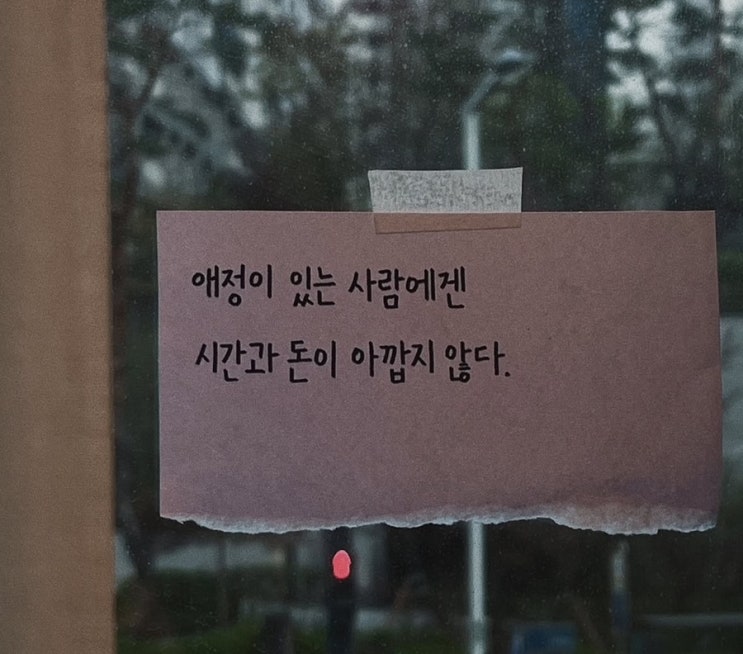 애정이 있는 사람에겐
시간과 돈이 아깝지 않다.